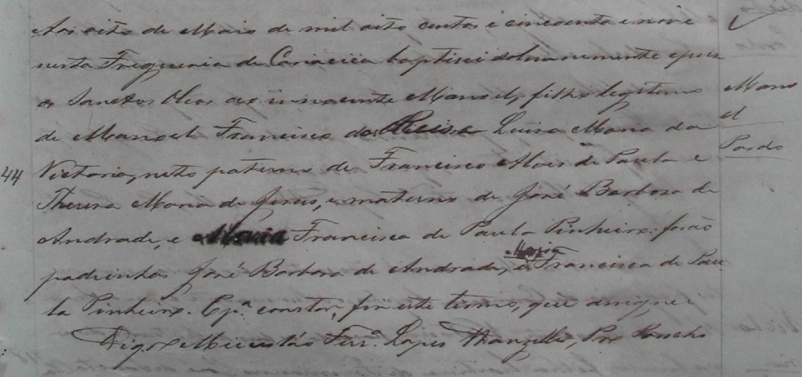 Aos oito de Maio de mil oito centos e cincoenta e nove
nesta Freguezia de Cariacica baptisei solemnemente e puz
os Sanctos Oleos ao innocente Manoel, filho legitimo
de Manoel Francisco dos Reis e Luisa Maria da
Victoria, neto paterno de Francisco Alves de Paula e
Theresa Maria de Jesus, e materno de José Barbosa de
Andrade, e Maria Francisca de Paula Pinheiro: forão
padrinhos José Barbosa de Andrade, e Maria Francisca de Pau
la Pinheiro. E pª. constar, fiz este termo, que assignei
Lopes
Mano
el
Pardo
44